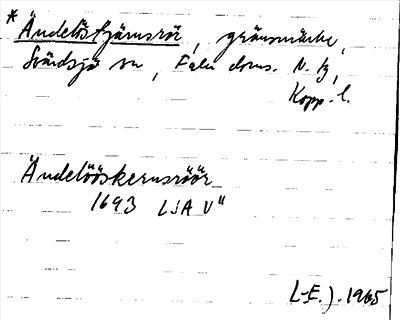 * Ändelöstjärnsrör, gränsmärke,
Svärdsjö sn, Falu doms. N. tg,
Kopp. l.
Ändelööskernsröör
1693 LSA V"
L-E.). 1965